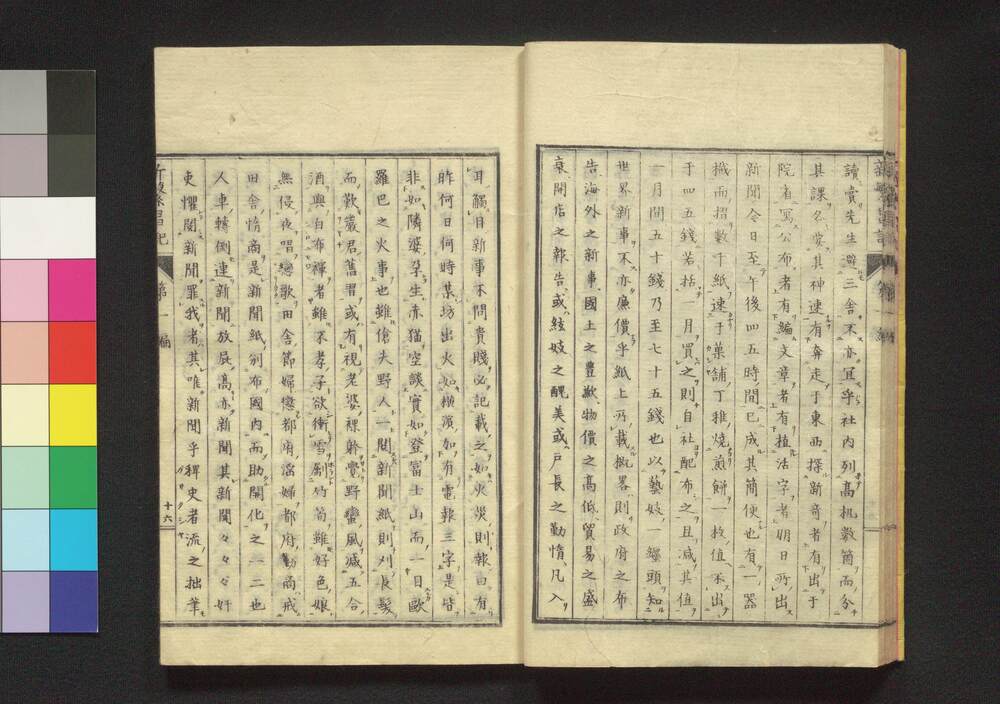 讀賣先生避三舍不亦宜乎社內列高机數箇而分
其課名賞其神速有奔走于東西探新奇者有出于
院省寫公布者有編文章者有植活字者明日所出
新聞今日至午後四五時間已成其簡便也有一器
械而招數千紙速于菓舖丁稚燒煎餅一枚值不出
于四五錢若括一月買之則自社配布之且減其值
一月間五十錢乃至七十五錢也以藝妓一纏頭知
世界新事不亦廉價乎紙上所載概畧則政府之布
告海外之新事國土之豐歉物價之高低貿易之盛
衰開店之報告或妓之醜美或戶長之勤惰凡入
耳觸目新事不問貴賤必記載之如火災則報曰有
昨何日何時某坊出火如橫濱加有電報三字是皆
非如隣婆孕生赤猫空談實如登富士山而一目歐
羅巴之火事也雖傖夫野人一閱新聞紙則刈長髮
而歎叢君舊習或有視老婆裸躰賣野蠻風減五合
酒與白布褌者雖不孝子欲衝雪劚竹筍雖好色娘
無侵夜唱戀歌田舍節婦戀都府淫婦都府勤商戒
田舍惰商是新聞紙別布國內而助開化之一二也
人車轉倒連新聞放屁高亦新聞其新聞々々々奸
吏懼閱新聞罪我者其唯新聞乎稗史者流之拙筆
新繁昌記
第一編
十六